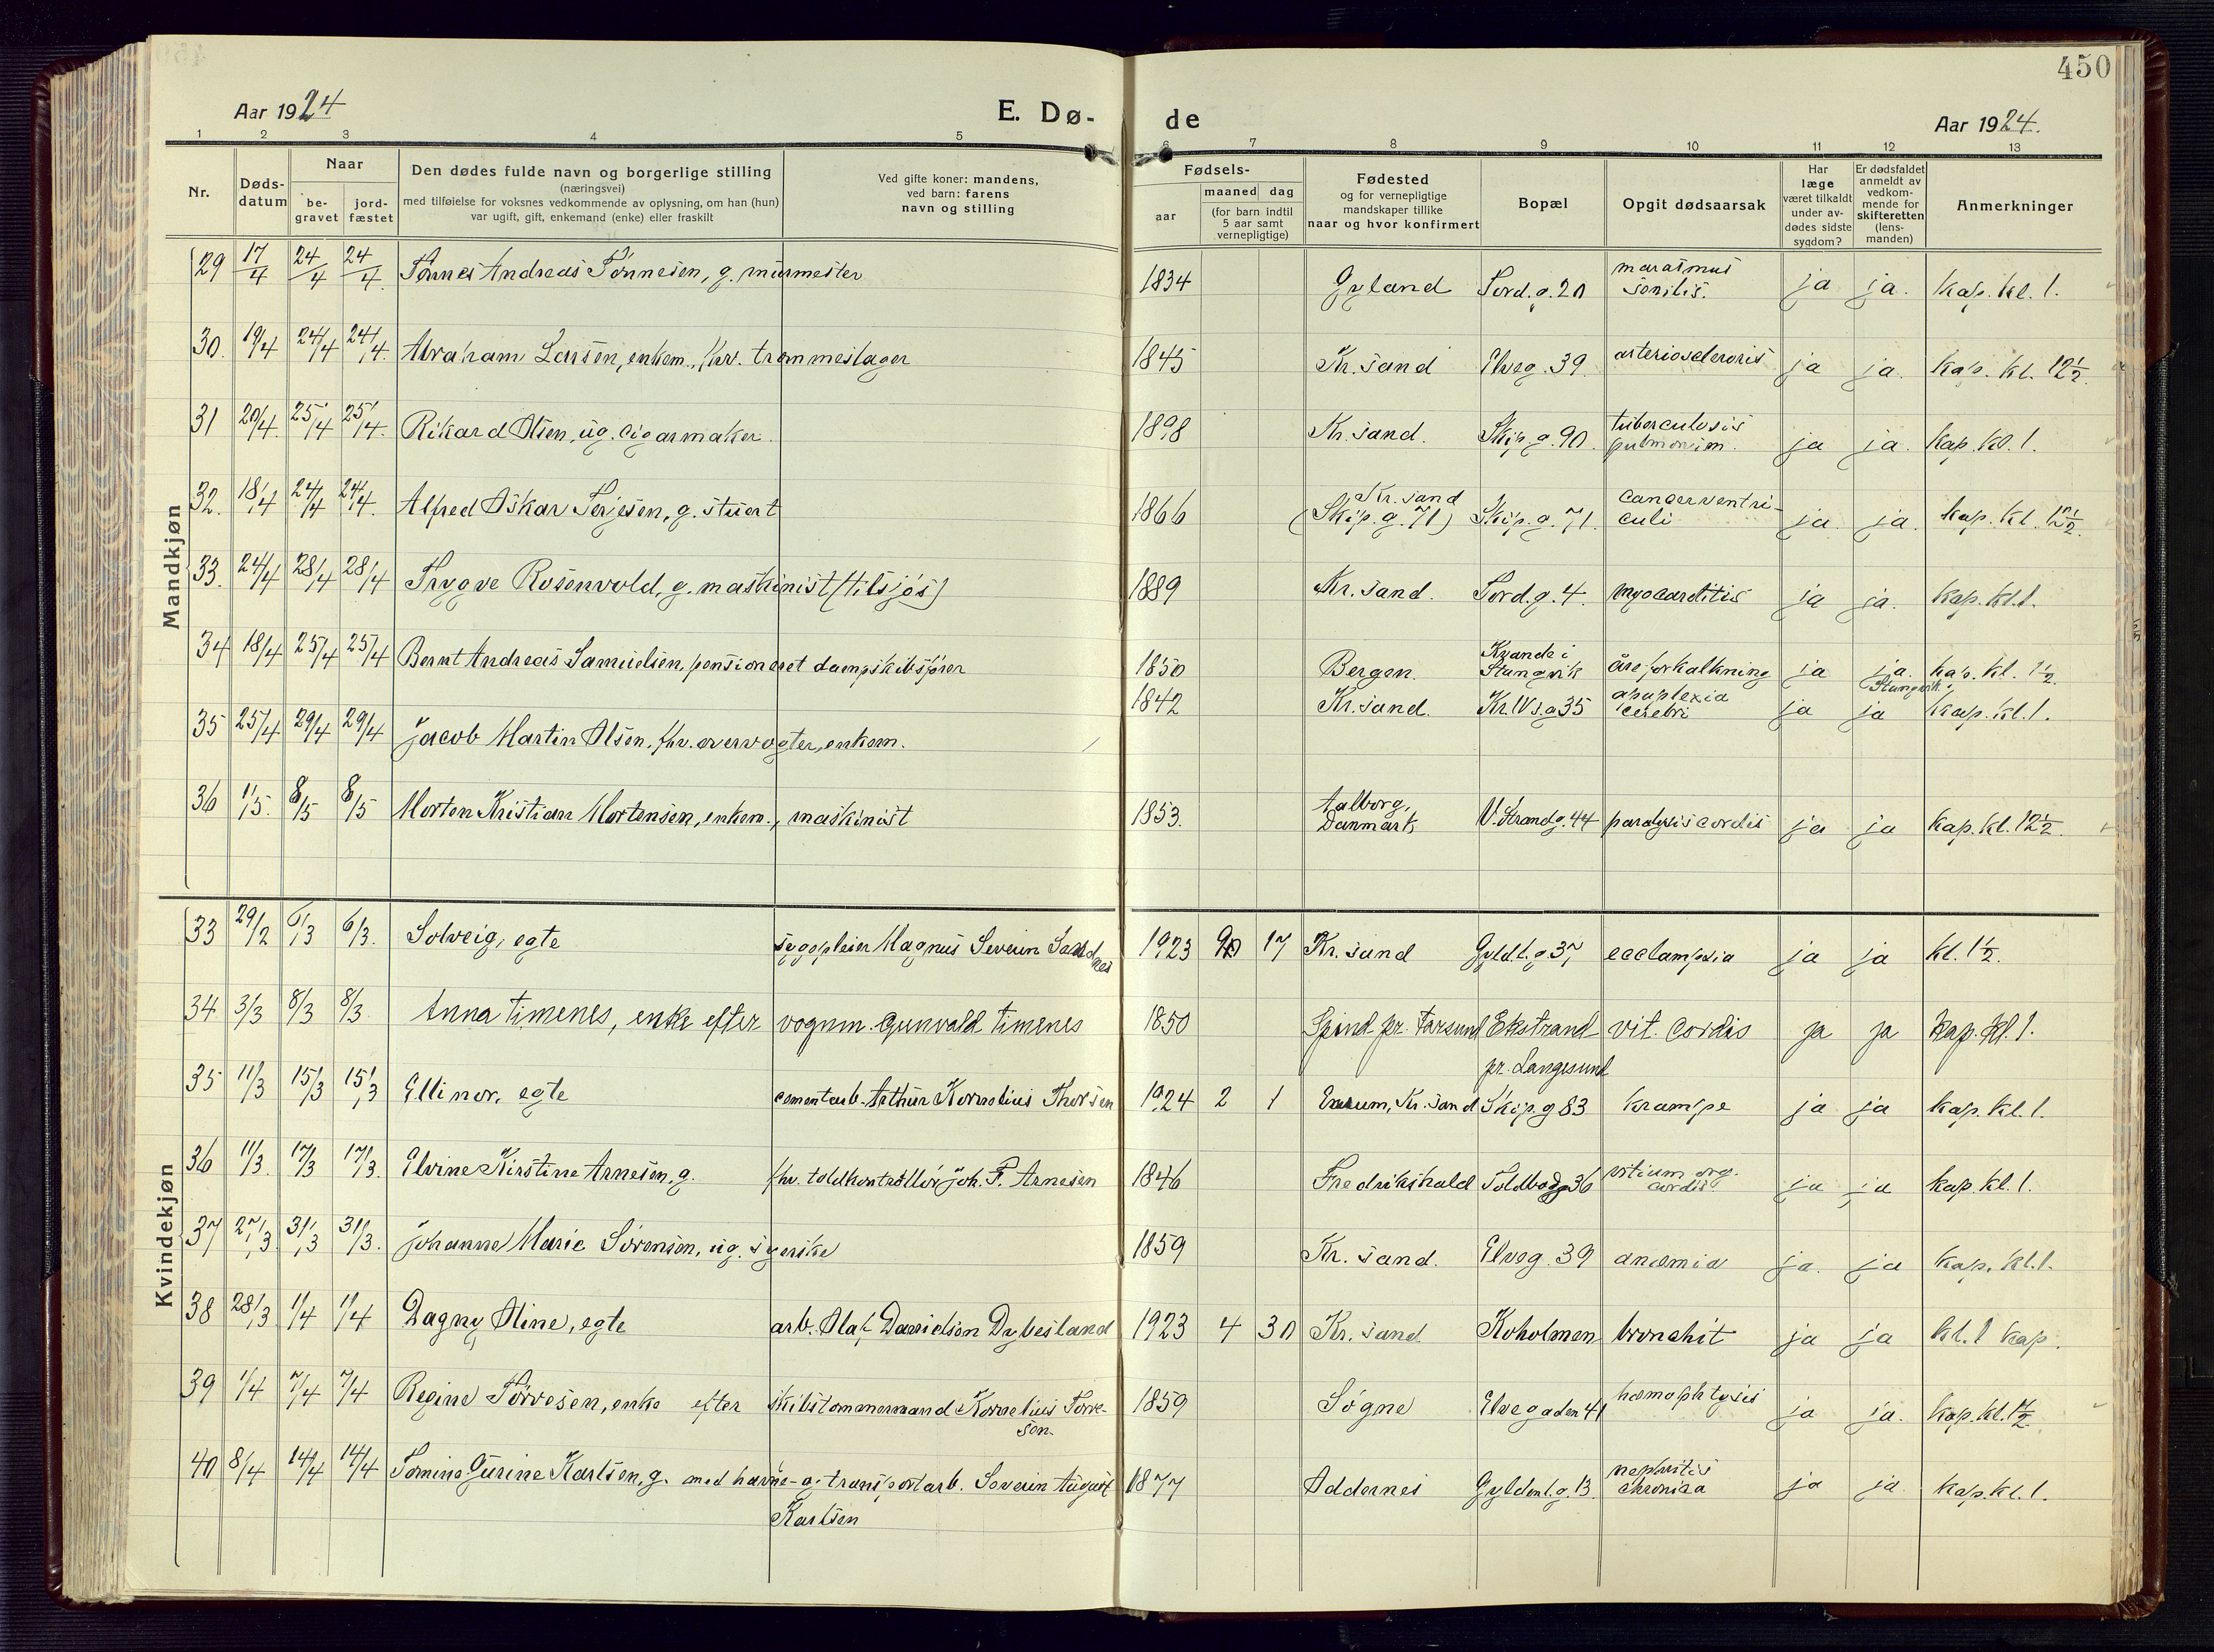 450
Aar 1924
E. Dø-
de
Aar 1924.
1 2 3 4 5 6 7 8 9 10 11 12 13
Nr.
Døds-
datum
Naar
be-
gravet
jord-
fæstet
Den dødes fulde navn og borgerlige stilling
(næringsvei)
med tilføielse for voksnes vedkommende av oplysning, om han (hun)
var ugift, gift, enkemand (enke) eller fraskilt
Ved gifte koner: mandens,
ved barn: farens
navn og stilling
Fødsels-
aar
maaned dag
(for barn indtil
5 aar samt
vernepligtige)
Fødested
og for vernepligtige
mandskaper tillike
naar og hvor konfirmert
Bopæl
Opgit dødsaarsak
Har
læge
været tilkaldt
under av-
dødes sidste
sygdom?
Er dødsfaldet
anmeldt av
vedkom-
mende for
skifteretten
(lens-
manden)
Anmerkninger
Mandkjøn
29 17/4 24/4 24/4. Tønnes Andreas Tønnesen, g. murmester 1834 Gyland Tord.g. 20 marasmus senilis. ja ja. kap. kl. 1.
30. 19/4 24/4 24/4. Abraham Larsen, enkem., fhv. trommeslager 1845 Kr.sand Elveg. 39 arteriosclerosis ja ja. kap. kl. 12 1/2.
31 20/4. 25/4 25/4. Rikard Olsen, ug. cigarmaker. 1898 Kr.sand. Skip.g. 90. tuberculosis pulmonum. ja ja. kap. kl. 1.
32. 18/4 24/4 24/4. Alfred Oskar Terjesen, g. stuert 1866 Kr.sand (Skip.g. 71) Skip.g. 71. cancer ventriculi ja ja. kap. kl. 12 1/2.
33. 24/4 28/4 28/4 Trygve Rosenvold, g. maskinist (tilsjøs) 1889 Kr.sand. Tord.g. 4. myocarditis ja ja. kap. kl. 1.
34 18/4 25/4 25/4 Bernt Andreas Samuelsen, pensioneret dampskibsfører 1850 Bergen. Kvande i Stangvik åreforkalkning ja ja. Stangvik. kap. kl. 1 1/2.
35 25/4 29/4 29/4 Jacob Martin Olsen, fhv. overvogter, enkem. 1842 Kr.sand. Kr.IVs.g 35 apoplexia cerebri ja ja kap. kl. 1.
36 1/5. 8/5 8/5 Morten Kristian Mortensen, enkem., maskinist 1853. Aalborg, Danmark V. Strandg. 44 paralysis cordis ja ja kap. kl. 12 1/2.
Kvindekjøn
33 29/2 6/3 6/3. Solveig, egte sygepleier Magnus Severin Sandnes 1923 17 Kr.sand Gyldl.g. 37 ecclampsia ja ja kl. 1 1/2.
34 3/3 8/3 8/3 Anna Timenes, enke efter vognm. Gunvald Timenes 1850 Spind pr. Farsund Ekstrand pr. Langesund vit. cordis ja ja kap. kl. 1.
35 11/3 15/3 15/3 Ellinor, egte cementarb. Arthur Kornelius Thorsen 1924 2 1 Kr.sand Skip.g 83 krampe ja ja kap. kl. 1.
36 11/3. 17/3 17/3. Elvine Kirstine Arnesen, g. fhv. toldkontrollør Joh. F. Arnesen 1846 Fredrikshald Toldbodg 36 vitium org. cordis ja ja kap. kl. 1.
37 27/3 31/3 31/3. Johanne Marie Sørensen, ug. syerske 1859 Kr.sand. Elveg. 39 anæmia ja. ja kap. kl. 1.
38 28/3 1/4 1/4 Dagny Oline, egte arb. Olaf Danielsen Dybesland 1923 4 30 Kr.sand Koholmen bronchit ja ja kl. 1 kap.
39 1/4 7/4 7/4 Regine Torvesen, enke efter skibstømmermand Kornelius Torvesen. 1859 Søgne Elvegaden 41 hæmophtysis ja ja. kap. kl. 1 1/2
40 8/4 14/4 14/4 Tomine Gurine Karlsen, g. med havne- og transportarb. Severin August Karlsen 1877 Oddernes Gyldenl.g. 13 nephritis chronica ja ja kap. kl. 1.